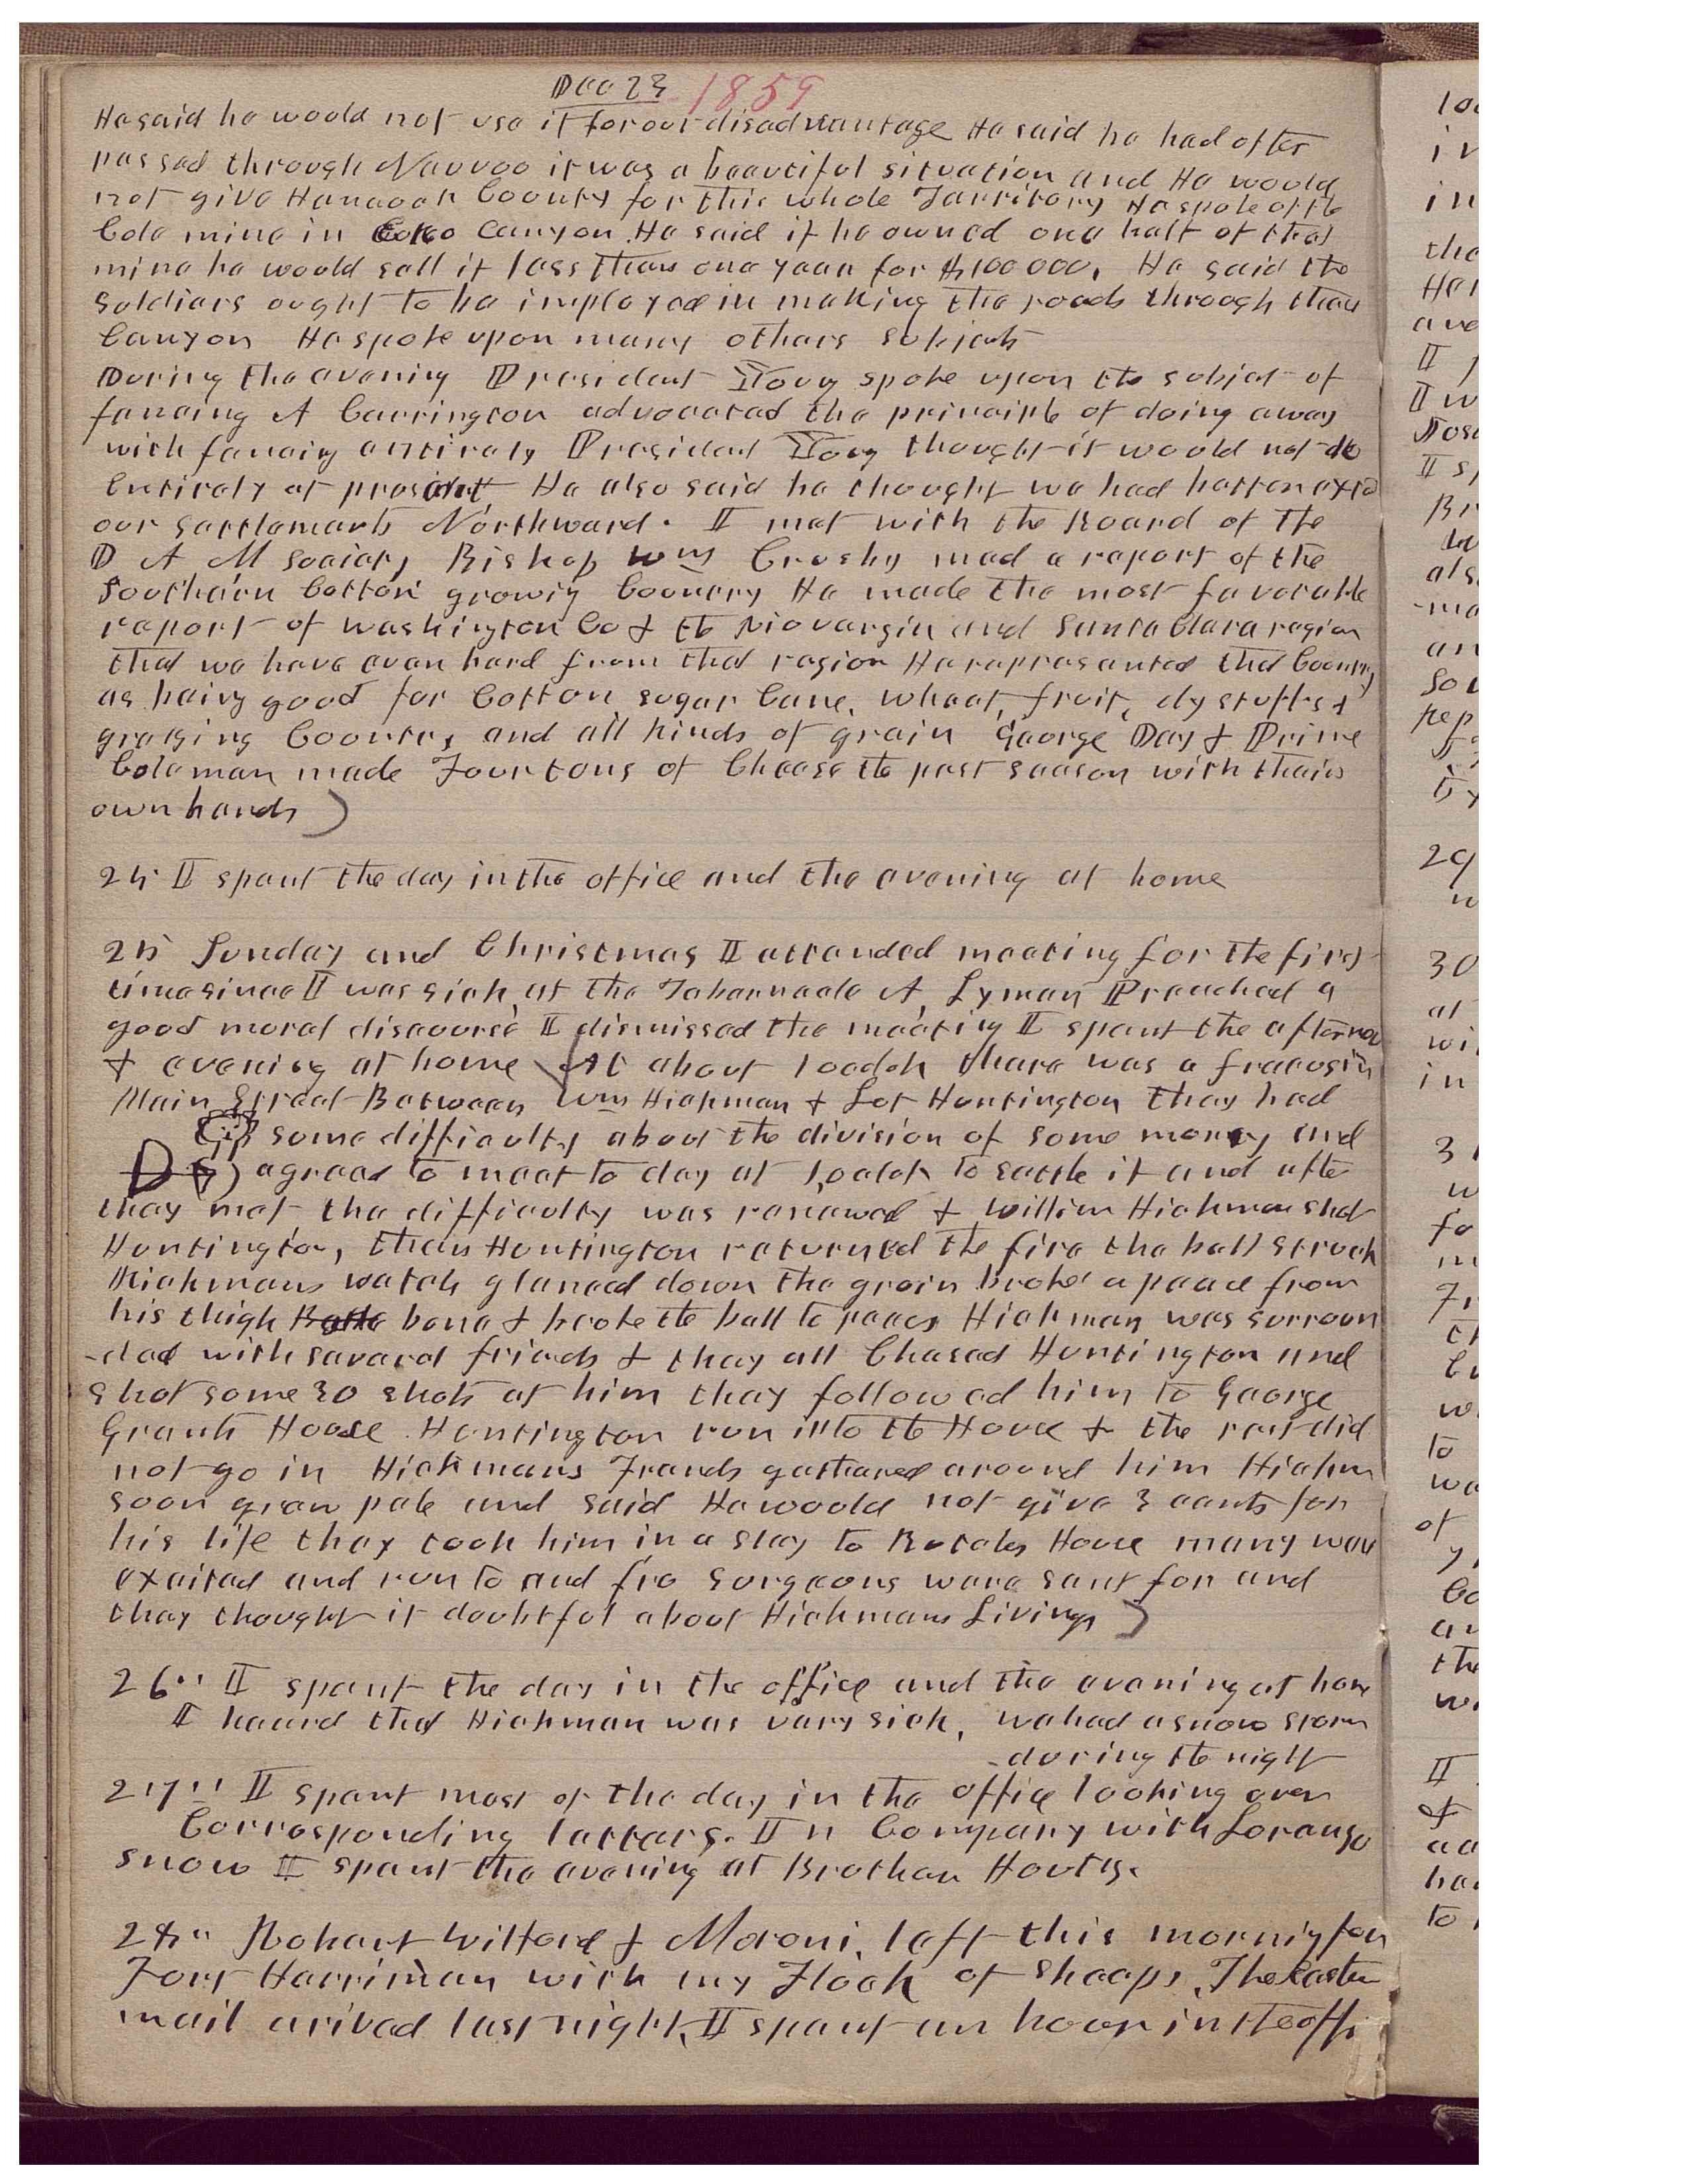 Dec 23 1859
He said he would not use it for our disadvantage He said he had often
passed through Nauvoo it was a beautiful situation and He would
not give Hancock County for this whole Territory He spoke of the
Cole mine in Echo Canyon. He said if he owned one half of that
mine he would sell it less than one year for $100000. He said the
Soldiers ought to be imployed in making the roads through their
Canyon He spoke upon many others subjects
During the evening President Young spoke upon the subject of
fencing A Carrington advocated the principle of doing away
with fencing entirely President Young thought it would not do
Entirely at present He also said he thought we had better extend
our settlements Northward. I met with the Board of the
D A M Society Bishop Wm Crosby mad a report of the
Southern Cotton growing Country He made the most favorable
report of Washington Co & the Rio vergin and Santa Clara region
that we have ever herd from that region He represented that Country
as being good for Cotton sugar Cane, wheat, fruit, dy stuffs &
grazing Country and all kinds of grain George Day & Prime
Coleman made Four tons of Cheese the past season with their
own hands)
24 I spent the day in the office and the evening at home
25 Sunday and Christmas I attended meeting for the first
time since I was sick at the Tabernacle A. Lyman Preached a
good moral discourse I dismissed the meeting I spent the afternoon
& evening at home At about 1 oclok there was a fracus in
Main Street Between Wm Hickman & Lot Huntington they had
some difficulty about the division of some money and
agreed to meet to day at 1 oclok to settle it and after
they met the difficulty was renewed & William Hickman shot
Huntington, then Huntington returned the fire the ball struck
Hickmans watch glanced down the groin broke a peace from
his thigh bone & broke the ball to peaces Hickman was surroun
-ded with several friends & they all Chased Huntington and
shot some 30 shots at him they followed him to George
Grants House Huntington run into the House & the rest did
not go in Hickmans Frends gathered around him Hickm
soon grew pale and said He would not give 3 cents for
his life they took him in a slay to House many were
excited and run to and fro Surgeons were sent for and
they thought it doubtful about Hickmans Living)
26" I spent the day in the office and the evening at home
I heard that Hickman was very sick, we had a snow storm
-during the night
27" I spent most of the day in the office looking over
Corresponding letters. In Company with Lorenzo
Snow I spent the evening at Brother Houtz.
28" Robert Wilford & Moroni, left this morning for
Fort Harriman with my Flock of Sheep, The Eastern
mail arived last night, I spent an hour in the offi